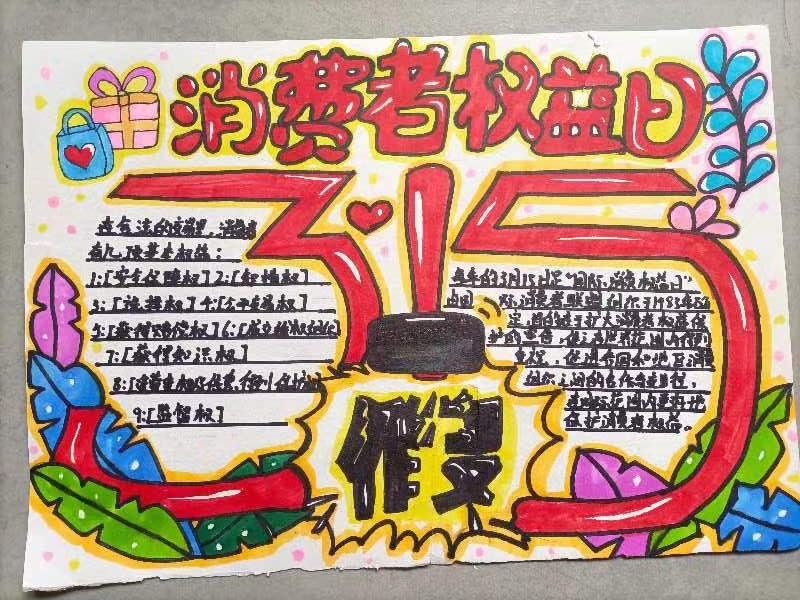 消费者权益日
315
在合法的交易里，消费者
有几项基本权益：
1:[安全保障权] 2:[知情权]
3:[选择权] 4:[公平交易权]
5:[获得赔偿权] 6:[成立维权组织]
7:[获得知识权]
8:[受尊重权及信息得到保护权]
9:[监督权]
每年的3月15日是"国际消费权益日"
由国际消费者联盟组织于1983年
定,目的在于扩大消费者权益保
护的宣传,使之在世界范围内得到
重视,促进各国和地区消费
组织之间的合作与
在国际范围内更好地
保护消费者权益。
假